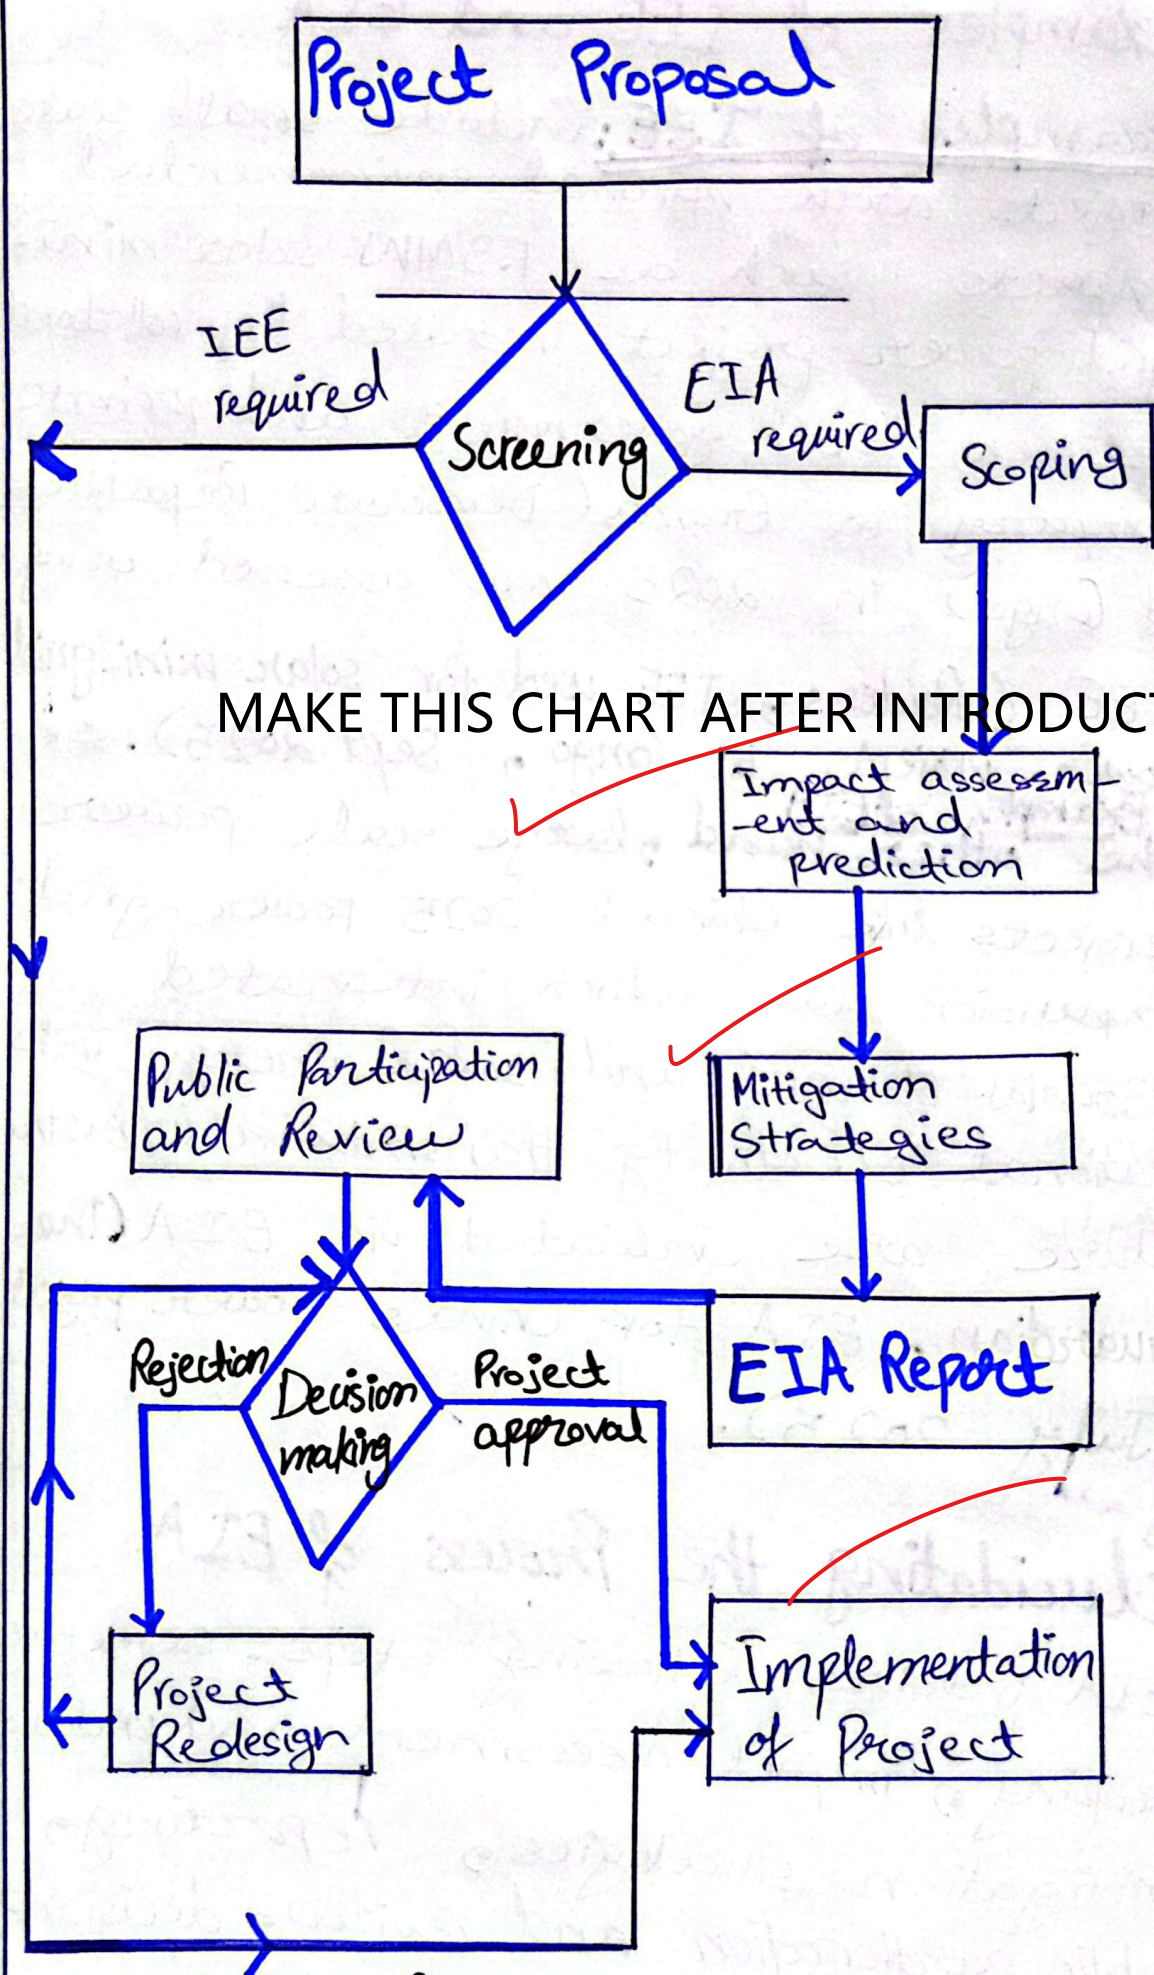 Project Proposal
IEE
required
EIA
required
Screening
Scoping
MAKE THIS CHART AFTER INTRODUCT
Impact assessm-
-ent and
prediction
Public Participation
and Review
Mitigation
Strategies
Rejection
Decision
making
Project
approval
EIA Report
Project
Redesign
Implementation
of Project